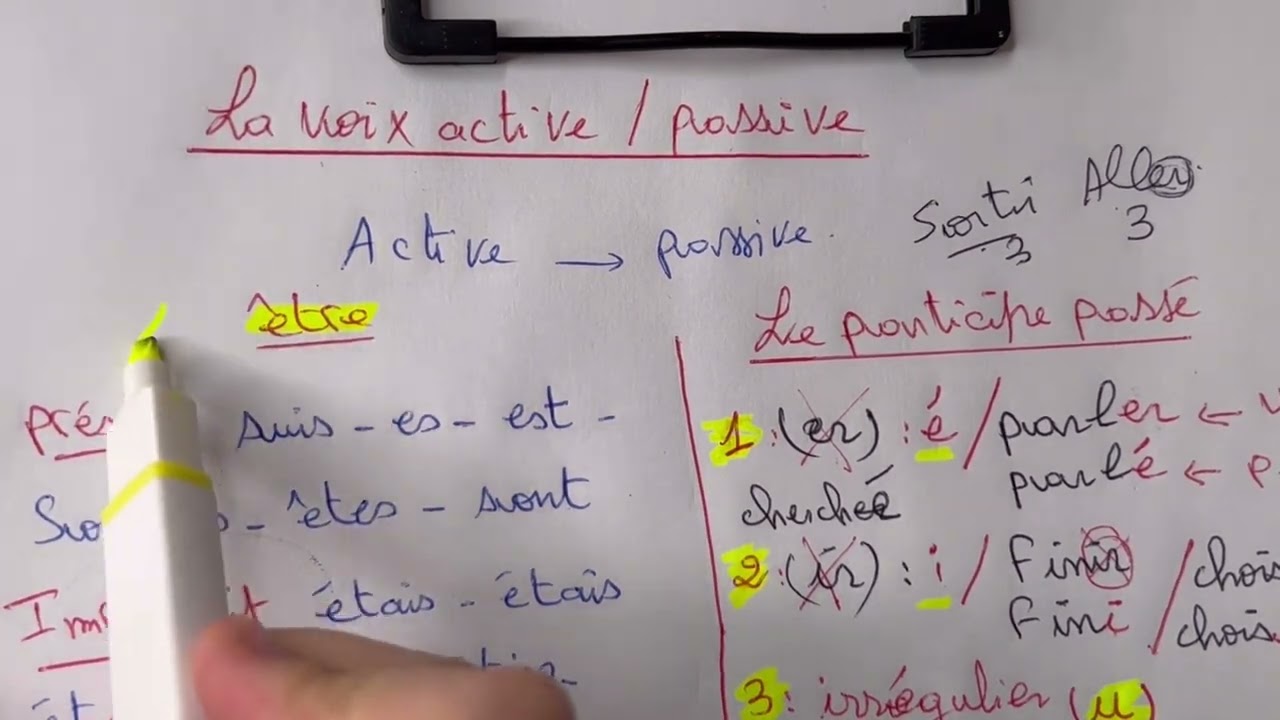 La voix active / passive
Active → passive.
Sorti Aller
3 3
être
suis - es - est -
êtes - sont
étais - étais
Le participe passé
1 : (er) : é / parler ←
parlé ←
cherché
2 : (ir) : i / Finir / chois
Fini / chois
3 : irrégulier (u)